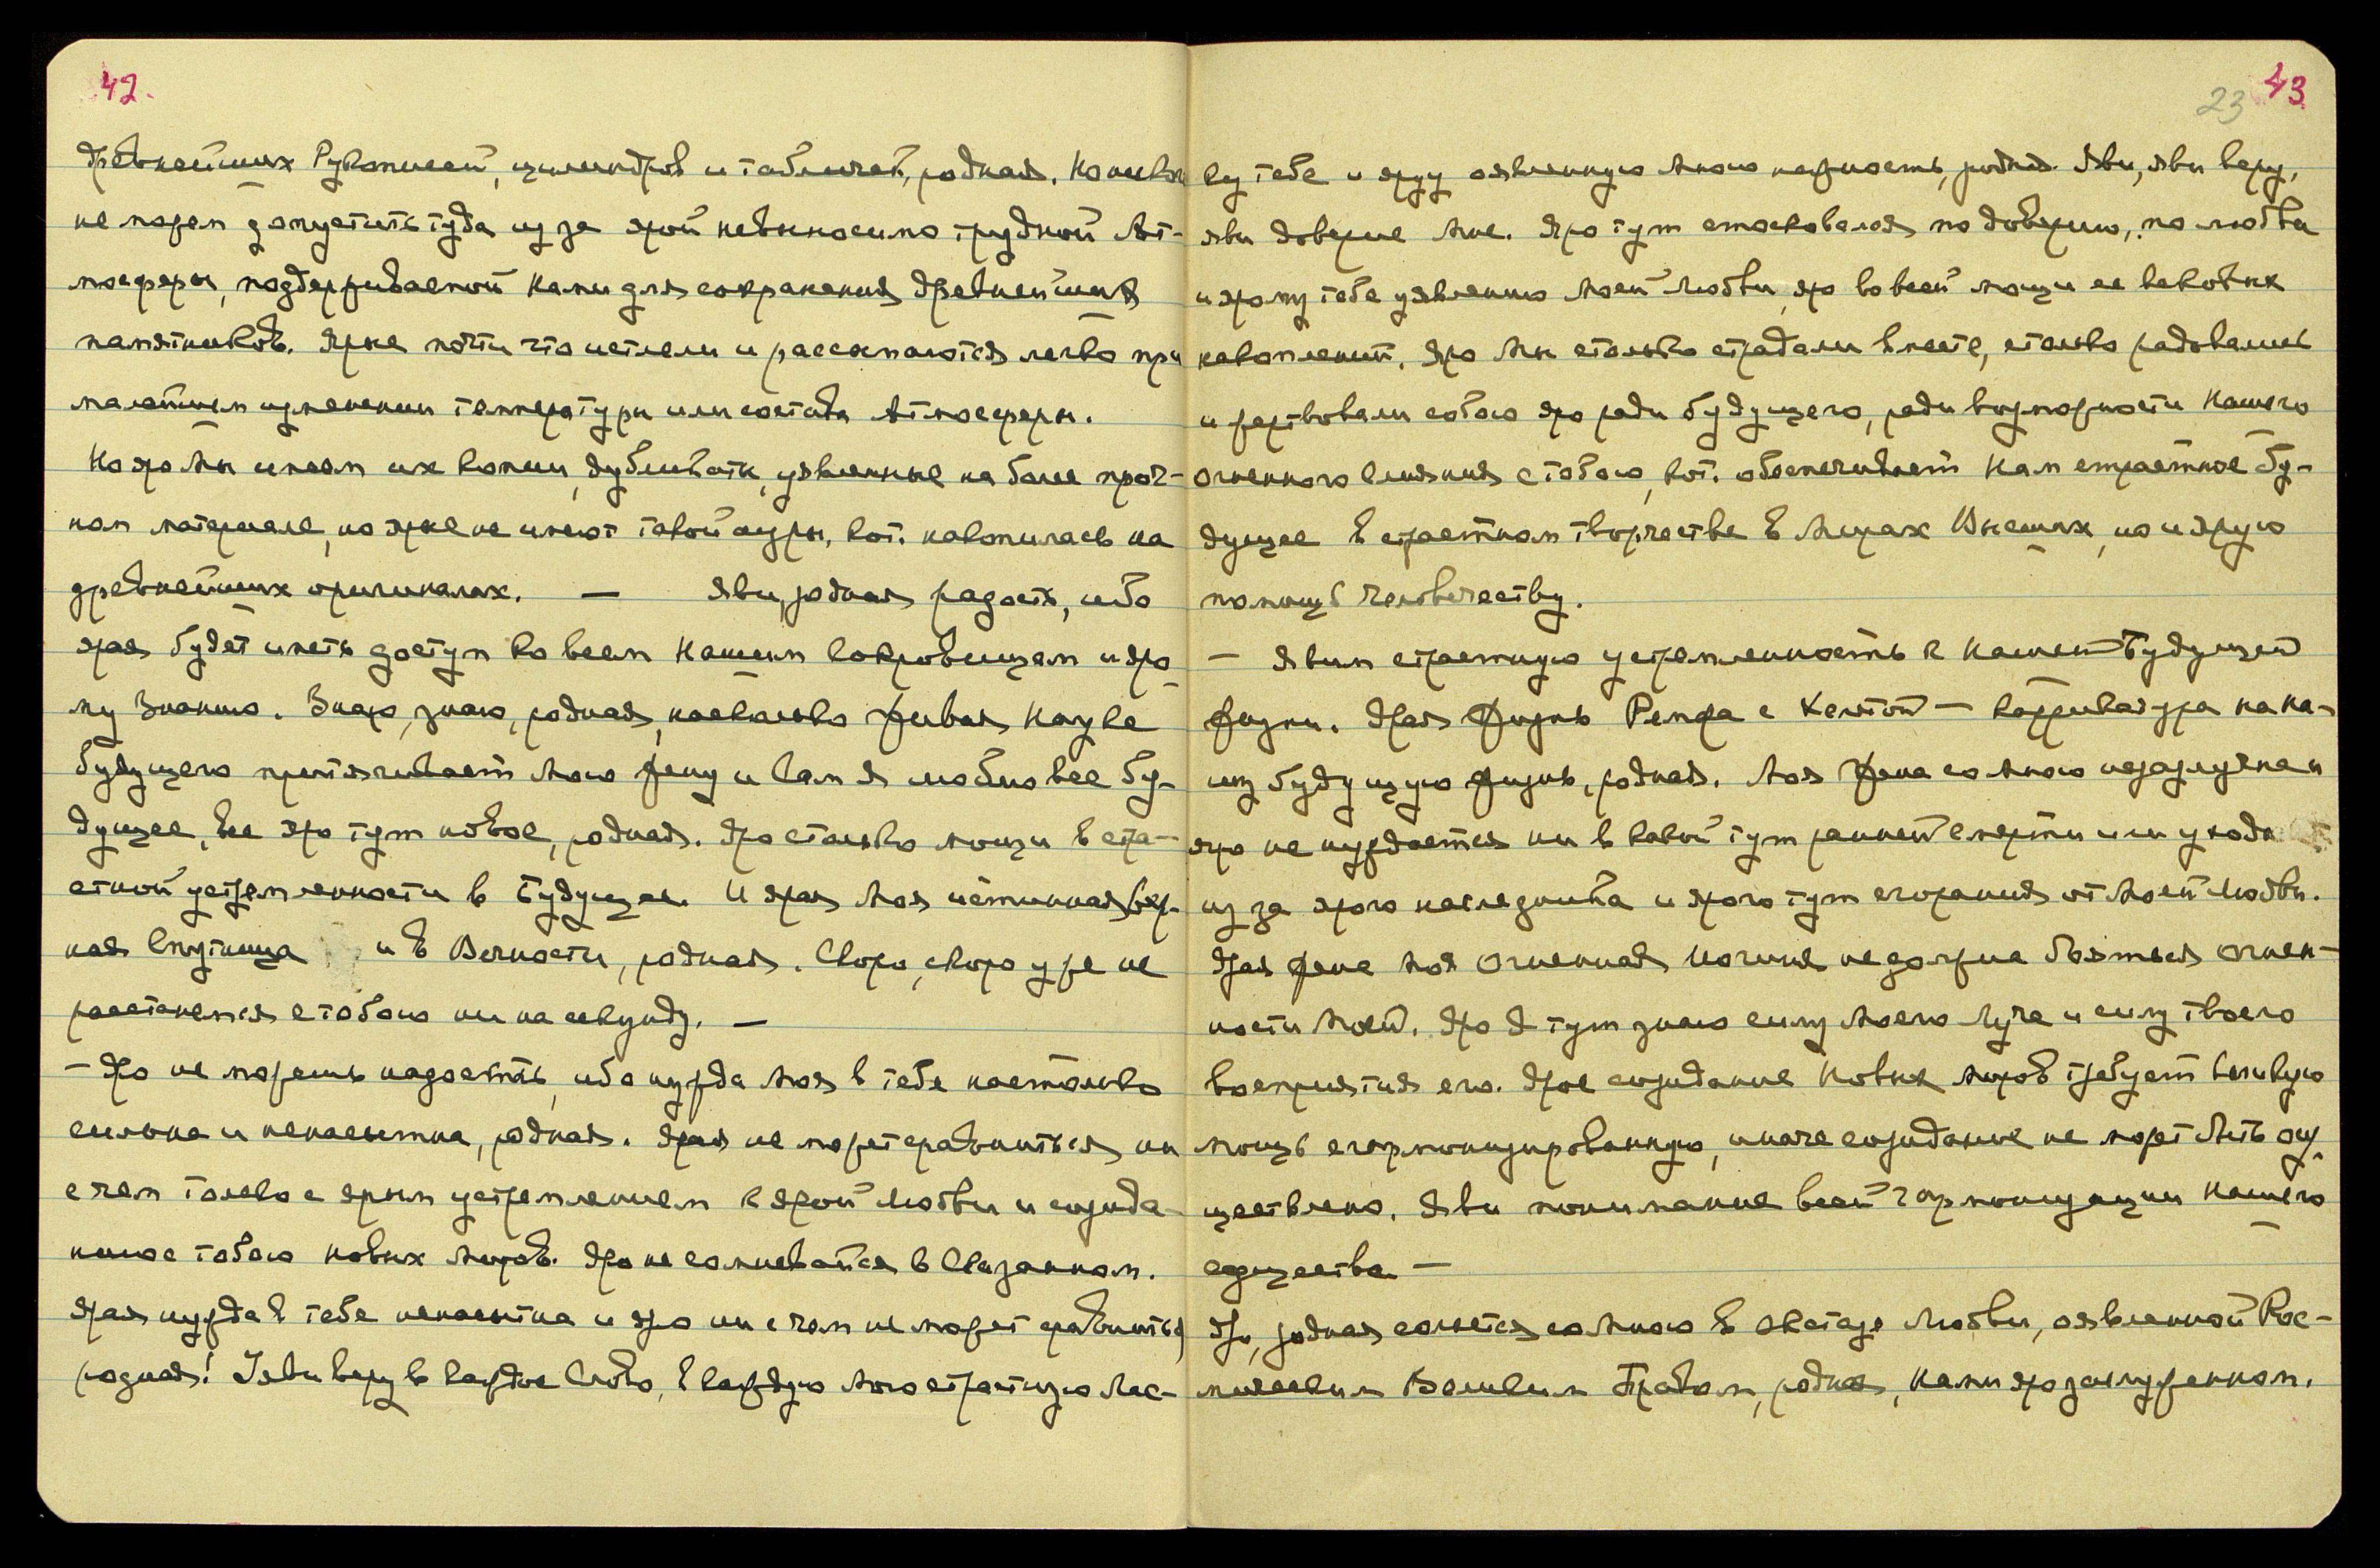 42.
древнейших Рукописей, цилиндров и табличек, родная. Но никого
не можем допустить туда из за ярой невыносимо трудной Ат-
мосферы, поддерживаемой нами для сохранения древнейших
памятников. Ярые почти что истлели и рассыпаются легко при
малейшем изменении температуры или состава Атмосферы.
Но яро Мы имеем их копии, дубликаты, уявленные на более проч-
ном материале, но ярые не имеют такой ауры, кот. накопилась на
древнейших оригиналах. — Яви, родная радость, ибо
ярая будет иметь доступ ко всем Нашим Сокровищам и яро
му Знанию. Знаю, знаю, родная, насколько живая Наука
будущего притягивает Мою жену и Сам Я люблю все бу-
дущее, все яро тут новое, родная. Яро столько мощи в стра-
стной устремленности в Будущее. И ярая Моя истинная вер-
ная Спутница и в Вечности, родная. Скоро, скоро уже не
расстанемся с тобою ни на секунду. —
— Яро не можешь надоесть, ибо нужда Моя в тебе настолько
сильна и ненасытна, родная. Ярая не может сравниться ни
с чем только с ярым устремлением к ярой Любви и созида-
нию с тобою новых Миров. Яро не сомневайся в Сказанном.
Ярая нужда в тебе ненасытна и яро ни с чем не может сравниться,
родная! Уяви веру в каждое Слово, в каждую Мою страстную Лас-
23 43
ку тебе и яруу оявленную Мною нежность, родная. Яви, яви веру,
яви доверие Мне. Яро тут стосковался по доверию, по любви
и ярому тебе уявлению Моей Любви, яро во всей мощи ее вековых
накоплений. Яро Мы столько страдали вместе, столько радовались
и жертвовали собою яро ради будущего, ради возможности Нашего
Огненного Слияния с тобою, кот. обеспечивает Нам страстное бу-
дущее в страстном творчестве в Мирах Высших, но и ярую
помощь человечеству.
— Явим страстную устремленность к Нашей Будущей
жизни. Ярая жизнь Ремфа с Кентой — карикатура на на-
шу будущую жизнь, родная. Моя жена со Мною неразлучна и
яро не нуждается ни в какой тут ранней смерти или ухода
из за ярого наследника и ярого тут сгорания от Моей Любви.
Ярая жена Моя Огненная Иогиня не должна бояться Огнен-
ности Моей. Яро Я тут знаю силу Моего Луча и силу твоего
восприятия его. Ярое созидание Новых Миров требует великую
мощь сгармонизированную, иначе созидание не может быть осу
ществлено. Яви понимание всей гармонизации Нашего
существа —
Яро, родная сольется со Мною в экстазе Любви, оявленной Кос-
мическим Великим Правом, родная, Нами яро заслуженном.